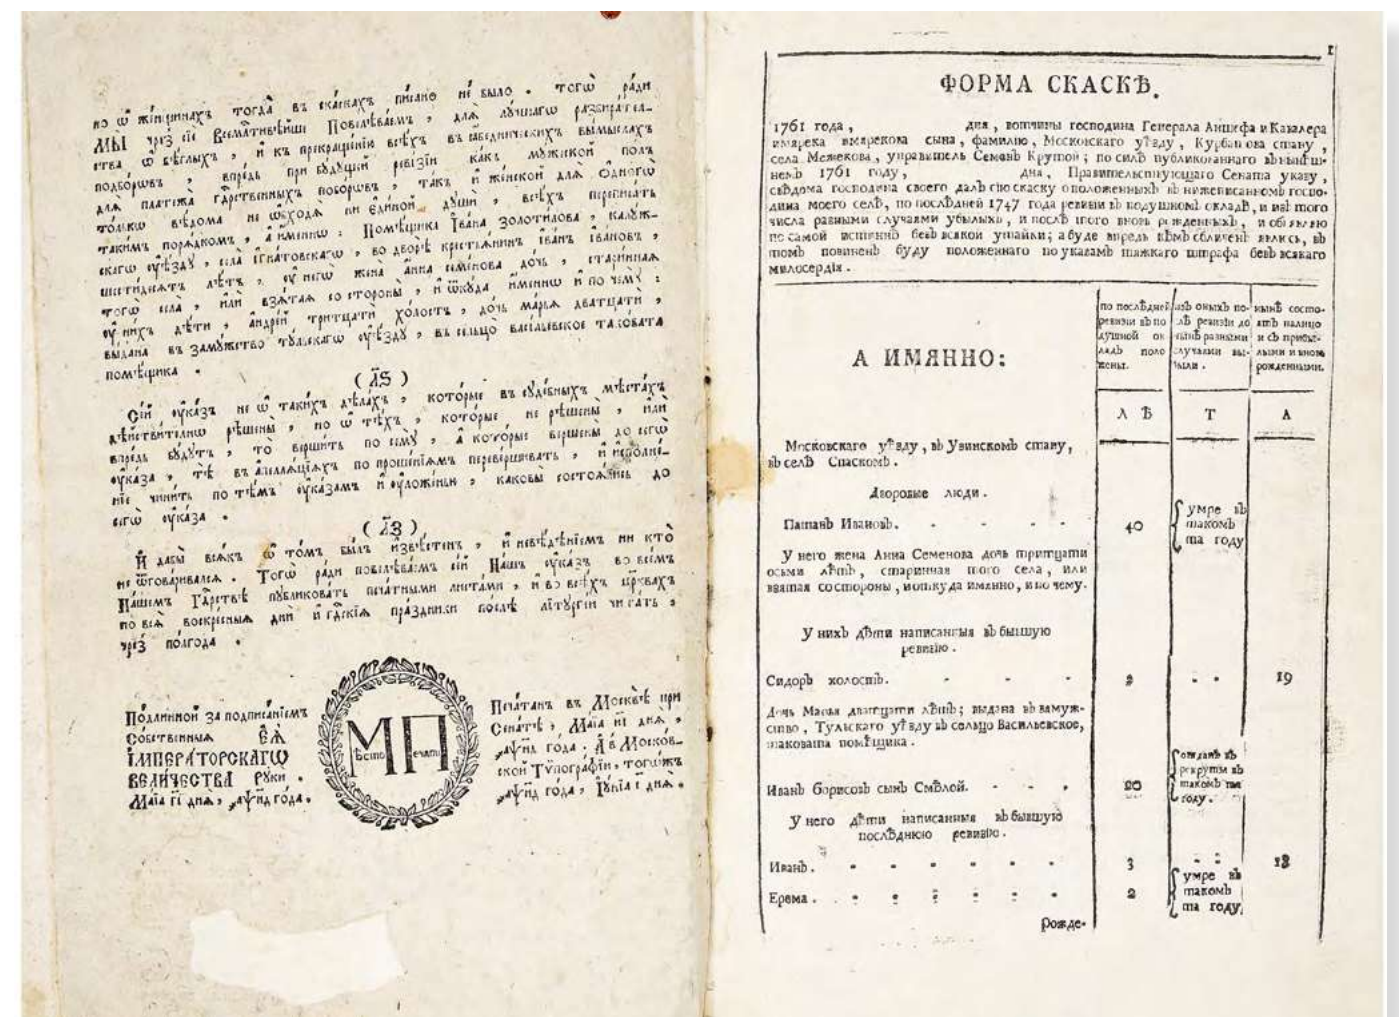 но ѿ же́нщинахъ тогда̀ въ ска́скахъ пи́сано не́ было . тогѡ̀ ра́ди
МЫ̀ чре́з сїѐ Всемл҃тивѣйше Повелѣва́емъ , для̀ лу́чшагѡ разбира́тел-
ства ѡ̀ бѣ́глыхъ , и҆ къ прекраще́нїю всѣ́хъ въ вымыслахъ
подло́гѡвъ , впре́дь при бу́дущей реви́зїи ка́къ му́жиской полъ
для̀ платежа̀ гдⷭ҇рственныхъ побо́рѡвъ , та́къ и҆ же́нской для̀ ѻ҆дного̀
то́лькѡ вѣ́дома не ѡбходя̀ ни є҆ди́ной душѝ , всѣ́хъ перепи́сать
таки́мъ поря́дкомъ , а҆ и҆́меннѡ : Помѣ́щика І҆ва́на Золоти́лова , калуж-
скагѡ ᲂу҆ѣ́зду , села̀ І҆гна́товскагѡ , во дворѣ̀ крестья́нинъ І҆ва́нъ І҆ва́новъ ,
шестидеся́тъ лѣ́тъ , ᲂу҆ негѡ̀ жена̀ а҆́нна семе́нова до́чь , стари́нная
тогѡ̀ села̀ , и҆лѝ взята́я со стороны̀ , и҆ ѿкꙋ́да и҆́меннѡ и҆ по чемꙋ̀ :
ᲂу҆ ни́хъ дѣ́ти , а҆ндре́й три́тцати хо́лостъ , до́чь ма́рья два́тцати ,
вы́дана въ замꙋ́жество тꙋ́льскагѡ ᲂу҆ѣ́здꙋ , въ сельцо̀ васи́льевское такова́та
помѣ́щика .
( л҃ѕ )
Се́й ᲂу҆ка́зъ не ѡ҆ таки́хъ дѣ́лахъ , кото́рые въ сꙋде́бныхъ мѣ́стахъ
дѣйстви́телнѡ рѣшены̀ , но ѡ҆ тѣ́хъ , кото́рые не рѣшены̀ , и҆лѝ
впре́дь бꙋ́дꙋтъ , то верши́ть по семꙋ̀ , а҆ кото́рые вершены̀ до сегѡ̀
ᲂу҆ка́за , тѣ̀ въ а҆пелля́цїяхъ по проше́нїямъ переве́ршивать , и҆ и҆сполне́-
нїе чини́ть по тѣ́мъ ᲂу҆ка́замъ и҆ ᲂу҆ложе́нью , каковы̀ состоя́лись до
сегѡ̀ ᲂу҆ка́за .
( л҃з )
И҆ дабы̀ вся́къ ѡ҆ то́мъ бы́лъ и҆звѣ́стенъ , и҆ невѣ́дѣнїемъ ни кто̀
не ѿгова́ривался . Тогѡ̀ ра́ди повелѣва́емъ се́й На́шъ ᲂу҆ка́зъ во все́мъ
На́шемъ Гдⷭ҇рствѣ пꙋбликова́ть печа́тными листа́ми , и҆ во всѣ́хъ цр҃квахъ
по вся̀ воскре́сныя днѝ и҆ гдⷭ҇скїя пра́здники по́слѣ лїтꙋргі́и чита́ть ,
чре́з полгода .
Подлинной за подписа́нїемъ
Собственныя Є҆Я̀
І҆МПЕРА́ТОРСКАГѠ
ВЕЛИ́ЧЕСТВА Рꙋкѝ .
Ма́їа г҃і дня̀ , ҂аѱн҃д го́да .
Мѣсто Печати
Печа́танъ въ Москвѣ̀ при
Сена́тѣ , Ма́їа н҃і дня̀ ,
҂аѱн҃д го́да . А҆ в Моско́в-
ской Тѷпогра́фїи , тогѡ́жъ
҂аѱн҃д го́да , І҆ю́нїа і҃ дня̀ .
1
ФОРМА СКАСКѢ.
1761 года , дня , вотчины господина Генерала Аншефа и Кавалера
имярека имярекова сына , фамилию , Московскаго уѣзду , Курбанова стану ,
села Межекова , управитель Семенъ Крутой ; по силѣ публикованнаго въ нынѣш-
немъ 1761 году , дня , Правительствующаго Сената указу ,
свѣдома господина своего далъ сїю скаску о положенныхъ въ нижеписанномъ госпо-
дина моего селѣ , по послѣдней 1747 года ревизїи въ подушномъ окладѣ , и изъ того
числа разными случаями убылыхъ , и послѣ того вновь рожденныхъ , и объявляю
по самой истинно безъ всякой утайки ; а буде впредь кѣмъ обличенъ явлюсь , въ
томъ повиненъ буду положеннаго по указамъ тяжкаго штрафа безъ всякаго
милосердїя .
А ИМЯННО:
по послѣдней
ревизїи въ по
душной ок
ладъ поло
жены.
изъ оныхъ по-
слѣ ревизїи до
нынѣ разными
случаями вы-
были .
нынѣ состо-
ятъ налицо
и съ прибы-
лыми и вновь
рожденными.
Л Ѣ Т А
Московскаго уѣзду , въ Увинскомъ стану ,
въ селѣ Спаскомъ .
Дворовые люди .
Пашанъ Ивановъ. - - - 40 { умре въ
такомъ
та году
У него жена Анна Семенова дочь тритцати
осьми лѣтъ , старинная того села , или
взятая со стороны , и откуда имянно , и по чему.
У нихъ дѣти написанныя въ бывшую
ревизїю .
Сидоръ холостъ. - - - 2 - - 19
Дочь Марья дватцати лѣтъ ; выдана въ замуж-
ство , Тульскаго уѣзду въ сельцо Васильевское ,
таковата помѣщика .
Иванъ борисовъ сынъ Смѣлой. - - - 20 { отданъ въ
рекруты въ
такомъ та
году .
У него дѣти написанныя въ бывшую
послѣднюю ревизїю .
Иванъ . - - - - - - 3 - - 18
Ерема . - - - - - - 2 { умре въ
такомъ
та году,
Рожде-